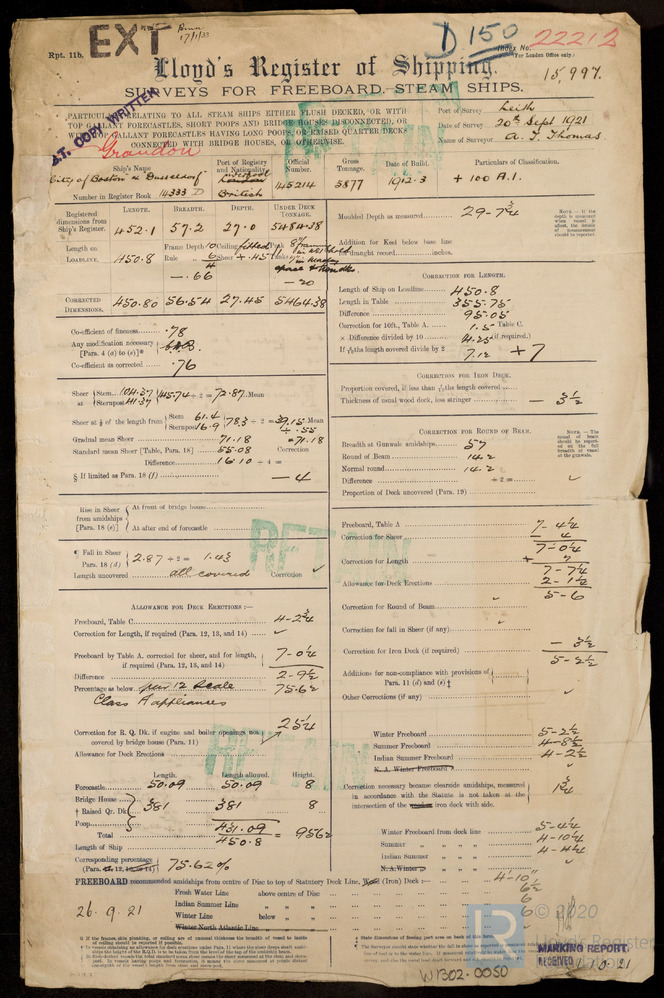 Rpt. 11b.
EXT
17/1/33
D150
Index No. 22212
(For London Office only.)
15,997.
Lloyd's Register of Shipping.
SURVEYS FOR FREEBOARD.—STEAM SHIPS.
PARTICULARS RELATING TO ALL STEAM SHIPS EITHER FLUSH DECKED, OR WITH
TOP GALLANT FORECASTLES, SHORT POOPS AND BRIDGE HOUSES DISCONNECTED, OR
WITH TOP GALLANT FORECASTLES HAVING LONG POOPS OR RAISED QUARTER DECKS
CONNECTED WITH BRIDGE HOUSES, OR OTHERWISE.
Port of Survey Leith
Date of Survey 20th Sept 1921
Name of Surveyor A. T. Thomas
RETAIN
Ship's Name
Port of Registry and Nationality.
Official Number.
Gross Tonnage.
Date of Build.
Particulars of Classification.
"City of Boston" ex "Dusseldorf"
Liverpool
British
145214
5877
1912.3
+ 100 A.1.
Number in Register Book 14333 D
Registered dimensions from Ship's Register.
LENGTH. BREADTH. DEPTH. UNDER DECK TONNAGE.
452.1 57.2 27.0 5484.38
Length on LOADLINE. 450.8
Frame Depth 10 Ceiling fitted
Rule 6 Sheer + .45
4
— .66
— 20
CORRECTED DIMENSIONS. 450.80 56.54 27.45 5464.38
Moulded Depth as measured 29-7¾
Addition for Keel below base line for draught record inches.
NOTE.—If the depth is measured when vessel is afloat, the details of measurement should be reported.
CORRECTION FOR LENGTH.
Length of Ship on Loadline 450.8
Length in Table 355.75
Difference 95.05
Correction for 10ft., Table A. 1.5 Table C.
× Difference divided by 10 14.25 (if required.)
If 6/10ths length covered divide by 2 7.12 +7
Co-efficient of fineness .78
Any modification necessary [Para. 4 (a) to (e)]*
Co-efficient as corrected .76
CORRECTION FOR IRON DECK.
Proportion covered, if less than 7/10ths length covered
Thickness of usual wood deck, less stringer — 3½
Sheer at Stem 104.37 Sternpost 41.37 145.74 ÷ 2 = 72.87 Mean
Sheer at ⅛ of the length from Stem 61.4 Sternpost 16.9 78.3 ÷ 2 = 39.15 Mean
÷ .55
Gradual mean Sheer 71.18 =71.18
Standard mean Sheer [Table, Para. 18] 55.08 Correction
Difference 16.10 ÷ 4 =
§ If limited as Para. 18 (f) —4
CORRECTION FOR ROUND OF BEAM.
Breadth at Gunwale amidships 57
Round of Beam 14.2
Normal round 14.2
Difference ÷ 2 = ✓
Proportion of Deck uncovered (Para. 19)
NOTE.—The round of beam should be reported on the full breadth of vessel at the gunwale.
Rise in Sheer from amidships [Para. 18 (e)]
At front of bridge house
At after end of forecastle
¶ Fall in Sheer Para. 18 (d) 2.87 ÷ 2 = 1.43
Length uncovered all covered Correction ✓
RETAIN
Freeboard, Table A 7-4¼
Correction for Sheer — 4
7-0¼
Correction for Length + 7
7-7¼
Allowance for Deck Erections 2-1½
5-6
Correction for Round of Beam ✓
Correction for fall in Sheer (if any) ✓
Correction for Iron Deck (if required) — 3½
5-2½
Additions for non-compliance with provisions of Para. 11 (d) and (e) ‡
Other Corrections (if any) ✓
ALLOWANCE FOR DECK ERECTIONS:—
Freeboard, Table C 4-2¾
Correction for Length, if required (Para. 12, 13, and 14) ✓
Freeboard by Table A. corrected for sheer, and for length, if required (Para. 12, 13, and 14) 7-0¼
Difference 2-9½
Percentage as below 75.62
Class A appliances
25¼
Correction for R. Q. Dk. if engine and boiler openings not covered by bridge house (Para. 11)
Allowance for Deck Erections
RETAIN
Winter Freeboard 5-2½
Summer Freeboard 4-8½
Indian Summer Freeboard 4-2½
N. A. Winter Freeboard ✓
Correction necessary because clearside amidships, measured in accordance with the Statute is not taken at the intersection of the wooden iron deck with side. 1¾
Length. Length allowed. Height.
Forecastle 50.09 50.09 8
Bridge House † Raised Qr. Dk. 381 381 8
Poop
Total 431.09 = .9562
Length of Ship 450.8
Corresponding percentage 75.62%
Winter Freeboard from deck line 5-4¼
Summer " " " " 4-10¼
Indian Summer " " " " 4-4¼
N.A. Winter " " " ✓
FREEBOARD recommended amidships from centre of Disc to top of Statutory Deck Line, Wood (Iron) Deck:— 4-10"
Fresh Water Line above centre of Disc 6½
Indian Summer Line " " 6
Winter Line below " 6
Winter North Atlantic Line
26.9.21
MARKING REPORT
RECEIVED
© 2020
W1302-0050